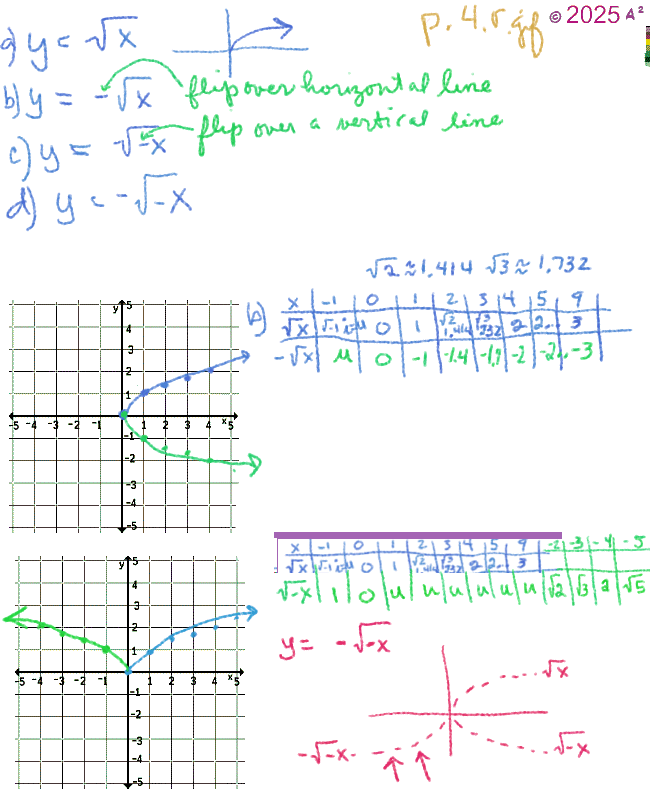 p. 4.r.gif © 2025 A²
a) y = √x
b) y = -√x flip over horizontal line
c) y = √-x flip over a vertical line
d) y = -√-x
√2 ≈ 1.414 √3 ≈ 1.732
b) x -1 0 1 2 3 4 5 9
√x √-1 i=u 0 1 √2 1.414 √3 1.732 2 2... 3
-√x u 0 -1 -1.4 -1.7 -2 -2.. -3
y
5
4
3
2
1
-5 -4 -3 -2 -1 1 2 3 4 x 5
-1
-2
-3
-4
-5
x -1 0 1 2 3 4 5 9 -2 -3 -4 -5
√x √-1 i=u 0 1 √2 1.414 √3 1.732 2 2.. 3
√-x 1 0 u u u u u u √2 √3 2 √5
y
5
4
3
2
1
-5 -4 -3 -2 -1 1 2 3 4 x 5
-1
-2
-3
-4
-5
y = -√-x
√x
-√-x √-x